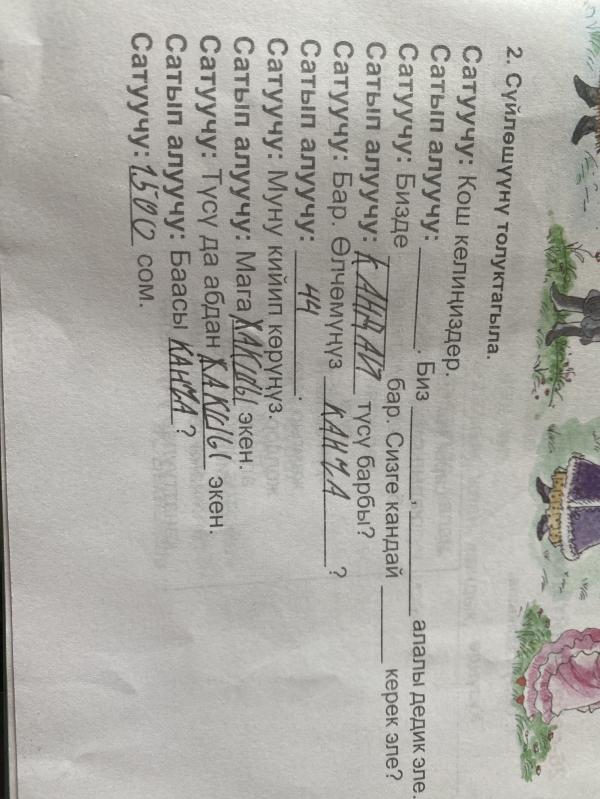 2. Сүйлөшүүнү толуктагыла.
Сатуучу: Кош келиңиздер.
Сатып алуучу: ________. Биз ________, ________ алалы дедик эле.
Сатуучу: Бизде ________ бар. Сизге кандай ________ керек эле?
Сатып алуучу: КАНДАЙ түсү барбы?
Сатуучу: Бар. Өлчөмүңүз КАНЧА ?
Сатып алуучу: 44.
Сатуучу: Муну кийип көрүңүз.
Сатып алуучу: Мага ЖАКШЫ экен.
Сатуучу: Түсү да абдан ЖАКШЫ экен.
Сатып алуучу: Баасы КАНЧА ?
Сатуучу: 1500 сом.